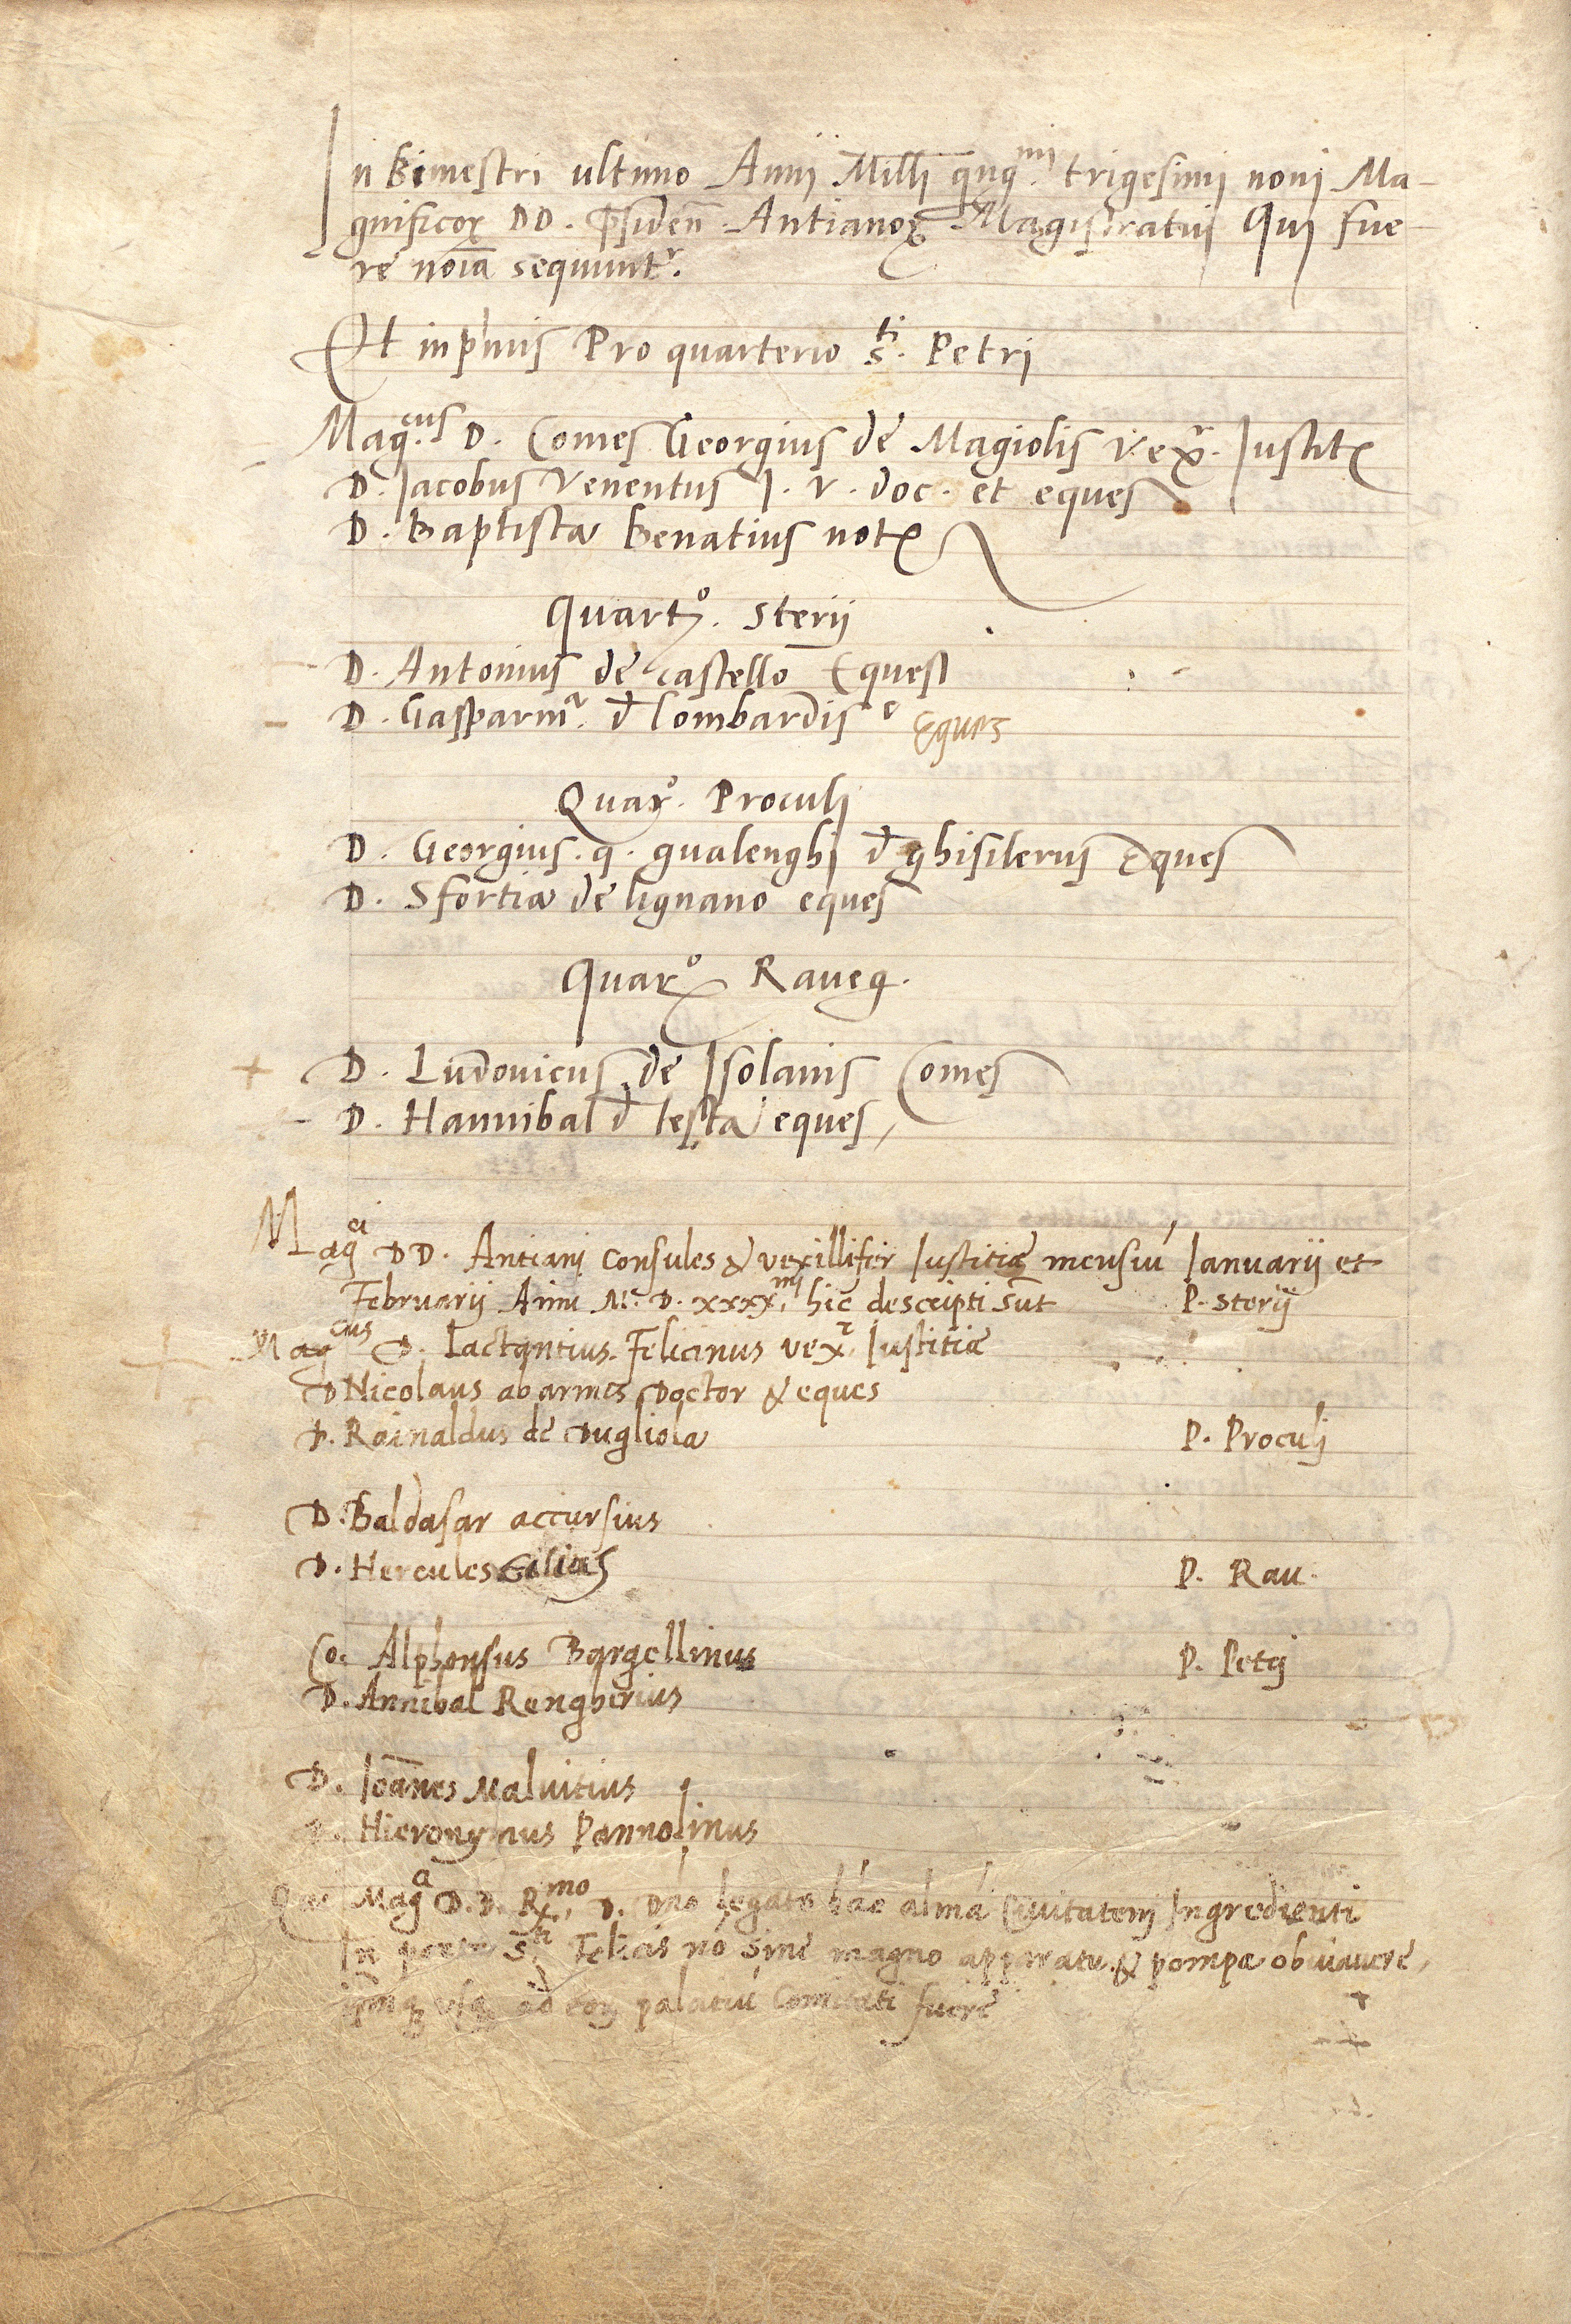 In Bimestri ultimo Annj Mill̄i q̄nq.mj trigesimj nonj Ma-
gnificoꝝ DD. P̄sidēn̄ Antianoꝝ Magistratuj Quj fue-
re no̅i̅a sequunt.r
Et inprimis Pro quarterio s.ti Petrj
Mag.cus D. Comes Georgius de Magiolis vex.r Iustitꝭ
D. Iacobus Venentus I. V. doc. et eques
D. Baptista Benatius notꝭ
Quart.o Sterij
D. Antonius de castello Eques
D. Gasparin.r d̄ lombardis Eques
Quar.o Proculj
D. Georgius q. gualenghj d̄ ghisilerijs Eques
D. Sfortia de lignano eques
Quar.o Raueg.
D. Ludouicus de Isolanis Comes
D. Hannibal d̄ testa eques
Mag.ci DD. Antianj consules & vexillifer Iustitiæ mensiū Ianuarij et
Februarij Anni M. D. xxxx.mj hic descripti sūt P. sterij
Mag.cus D. Lactantius Felicinus vex.r Iustitiæ
D Nicolaus ab armis Doctor & eques
D. Rainaldus de Dugliola P. Proculj
D. Baldasar accursius
D. Hercules P. Rau.
Co. Alphonsus Bargellinus P. Petrj
D. Annibal Rengherius
D. Ioānes Maluitius
D. Hieronymus Pannolinus
Mag D.D. R.mo D. Dn̄o legato hāc almā Ciuitatem Ingredienti
In porta S.ti Felicis nō sine magno apparatu & pompa obuiauere,
usq ad palatiū Comitati fuere